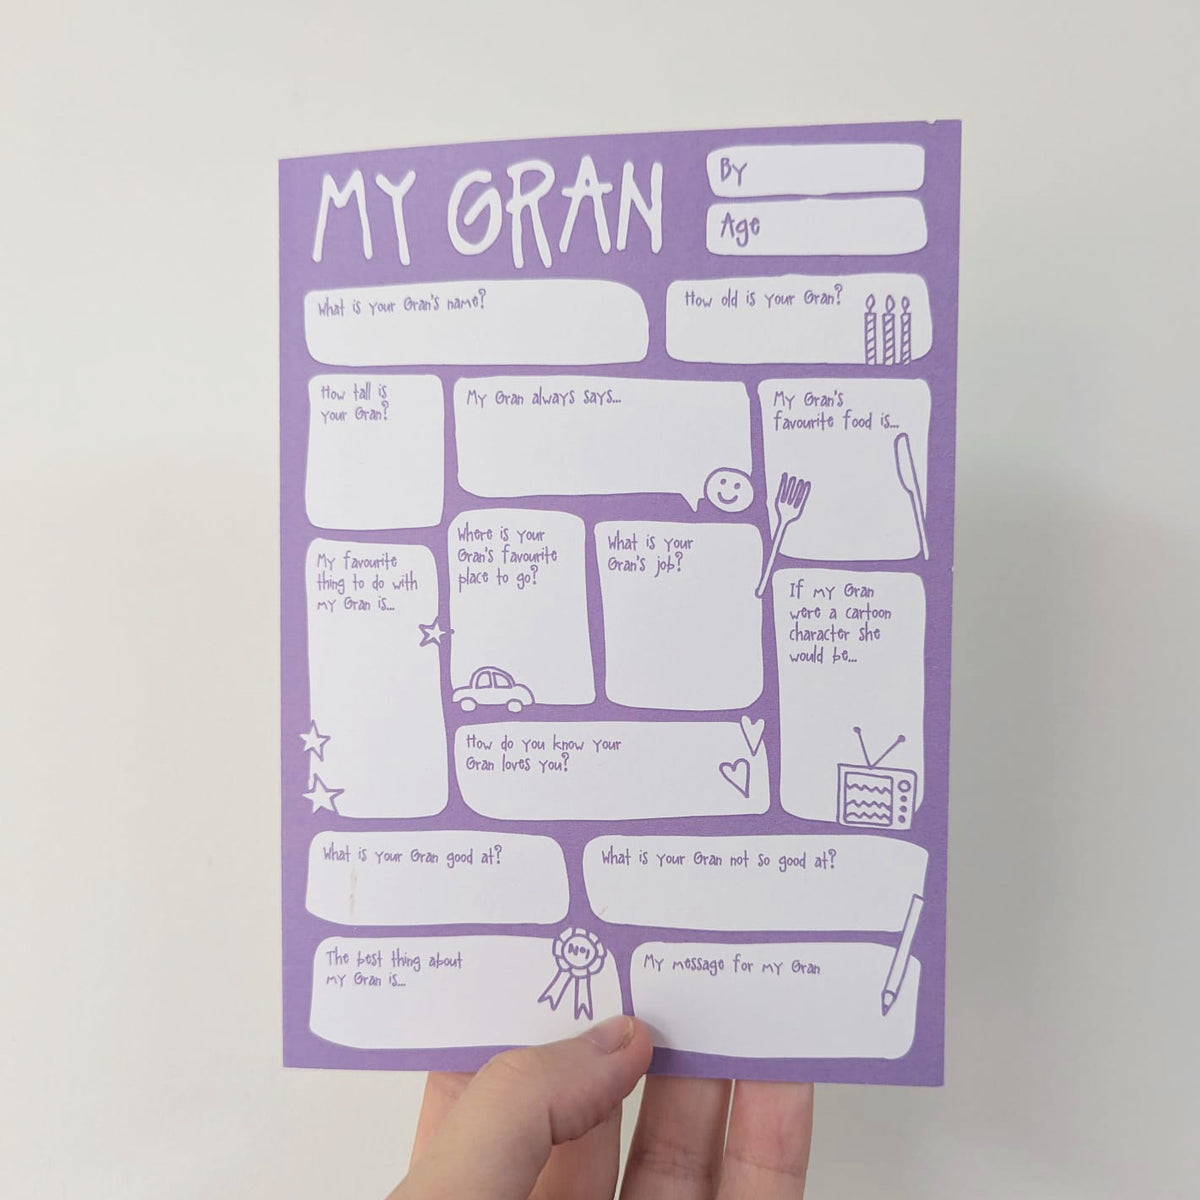 MY GRAN
By
Age
What is your Gran's name?
How old is your Gran?
How tall is
your Gran?
My Gran always says...
My Gran's
favourite food is...
My favourite
thing to do with
my Gran is...
Where is your
Gran's favourite
place to go?
What is your
Gran's job?
If my Gran
were a cartoon
character she
would be...
How do you know your
Gran loves you?
What is your Gran good at?
What is your Gran not so good at?
The best thing about
my Gran is...
No1
My message for my Gran